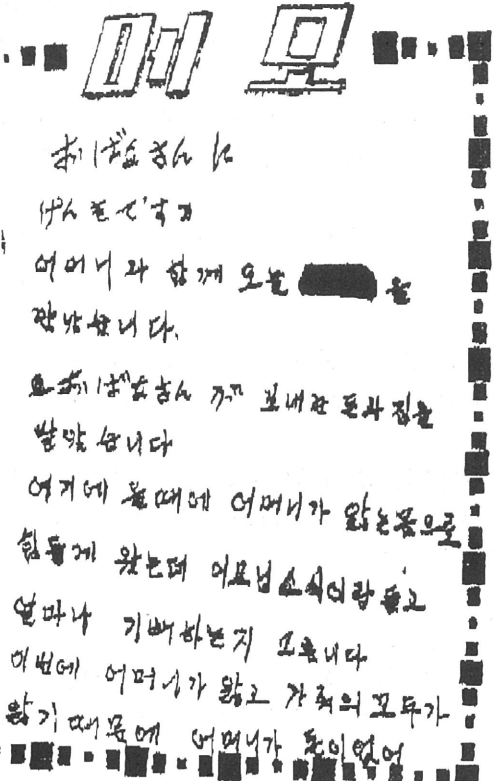 おばあさんに
げんきですか
어머니와 함께 오늘 을
만났습니다.
おばあさん께 보내준 돈과 짐을
받았습니다
여기에 올때에 어머니가 앓는몸으로
힘들게 왔는데 이모님소식이랑 듣고
얼마나 기뻐하는지 모릅니다
이번에 어머니가 앓고 가족의 모두가
앓기때문에 어머니가 돈이없어